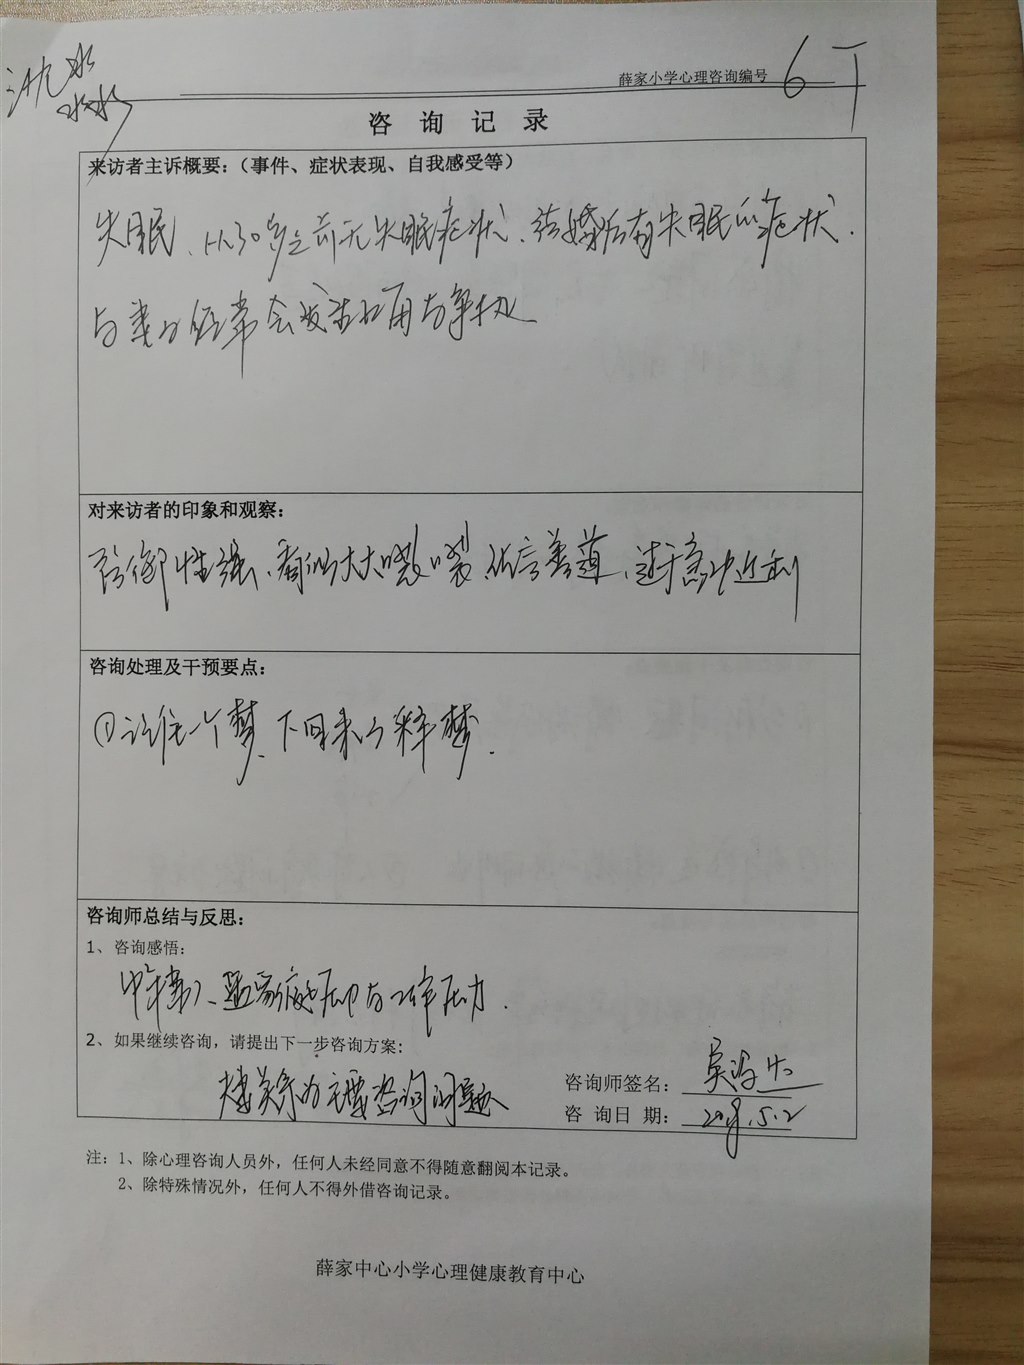 薛家小学心理咨询编号 6
咨 询 记 录
来访者主诉概要：（事件、症状表现、自我感受等）
失眠、从30岁之前无失眠症状、结婚后有失眠的症状.
与妻子经常会发生口角与争执
对来访者的印象和观察：
防御性强、看似大大咧咧、能言善道、过于急功近利
咨询处理及干预要点：
①记住一个梦、下回来了释梦.
咨询师总结与反思：
1、咨询感悟：
中年 家庭压力与工作压力.
2、如果继续咨询，请提出下一步咨询方案：
夫妻关系为主要咨询问题
咨询师签名：
咨 询 日 期： 2019.5.2
注：1、除心理咨询人员外，任何人未经同意不得随意翻阅本记录。
2、除特殊情况外，任何人不得外借咨询记录。
薛家中心小学心理健康教育中心